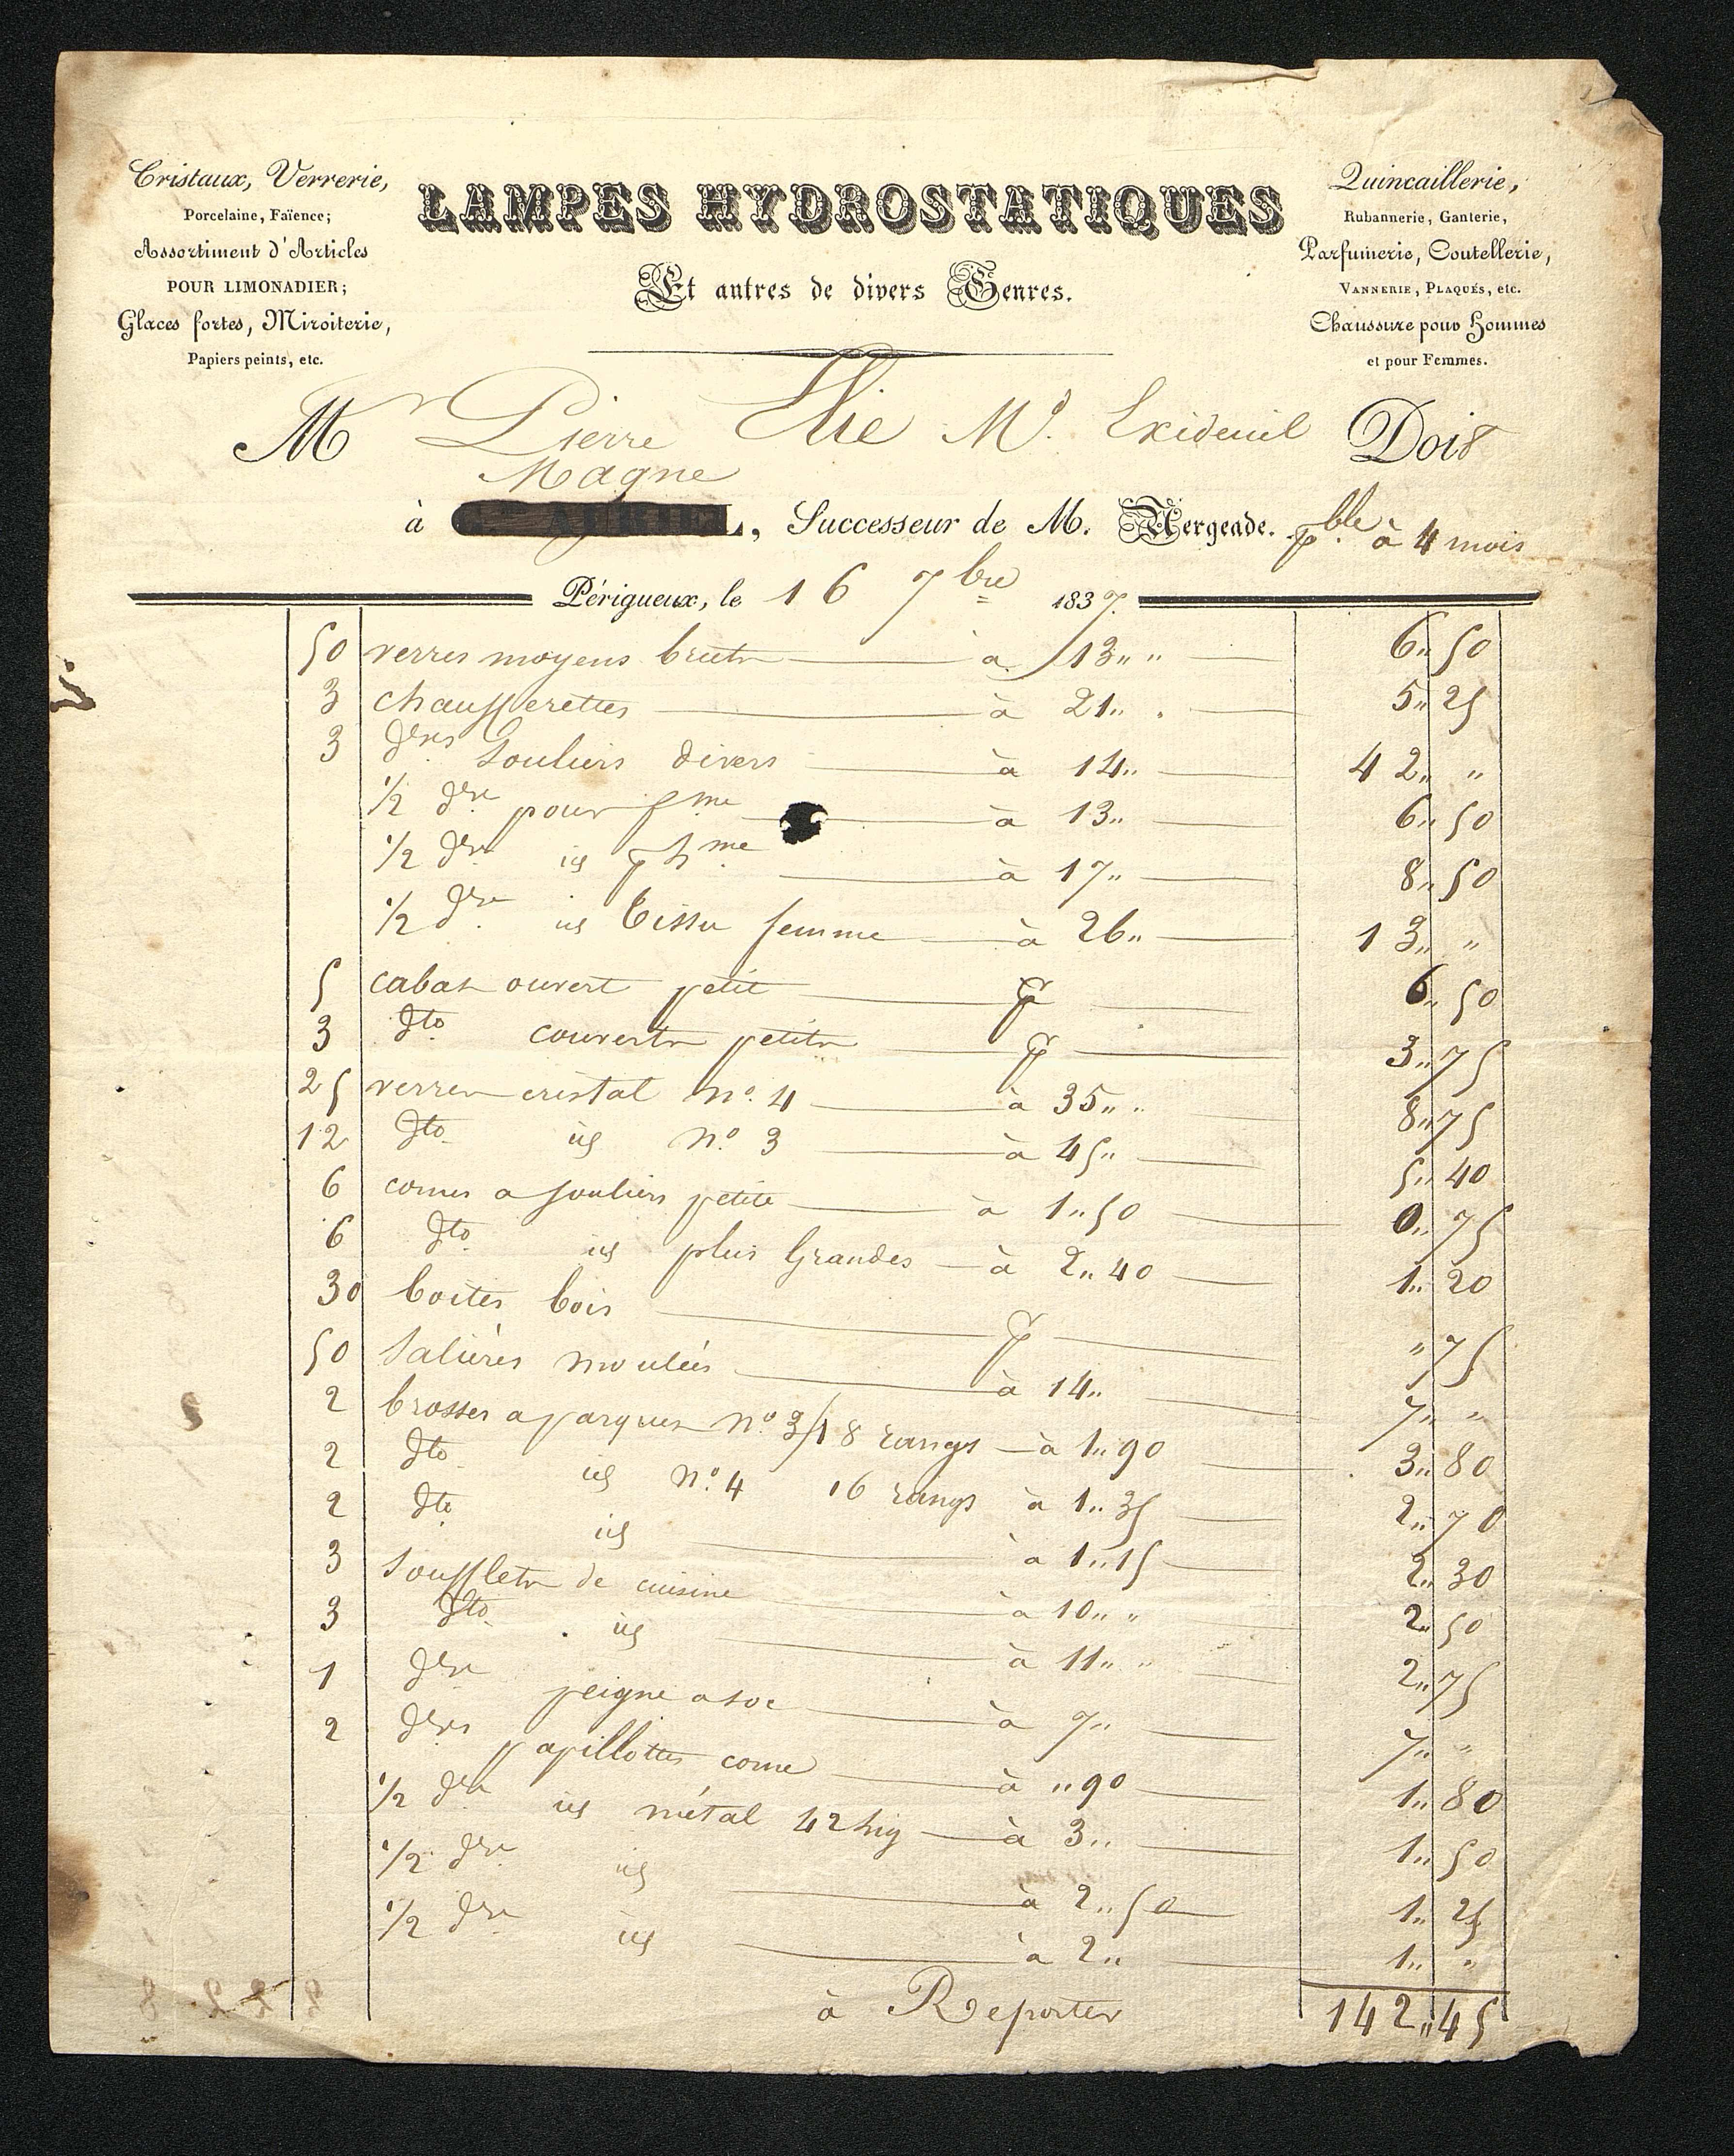 Cristaux, Verrerie,
Porcelaine, Faïence;
Assortiment d'Articles
POUR LIMONADIER;
Glaces fortes, Miroiterie,
Papiers peints, etc.
LAMPES HYDROSTATIQUES
Et autres de divers Genres.
Quincaillerie,
Rubannerie, Ganterie,
Parfumerie, Coutellerie,
VANNERIE, PLAQUÉS, etc.
Chaussure pour Hommes
et pour Femmes.
Mr Pierre Elie Md. Exideuil Doit
Magne
à , Successeur de M. Nergeade. pble à 4 mois
Périgueux, le 16 7bre 1837.
50 verres moyens bruts à 13,, ,, 6,, 50
3 chaufferettes à 21,, 5,, 25
3 dnes souliers divers à 14,, 42,, ,,
1/2 dne pour fme à 13,, 6,, 50
1/2 dne id p hme à 17,, 8,, 50
1/2 dne id tissu femme à 26,, 13,, ,,
5 cabas ouvert petit p 6,, 50
3 dto couverts petits p 3,, 75
25 verres cristal no. 4 à 35,, ,, 8,, 75
12 dto id no 3 à 45,, 5,, 40
6 cornes a souliers petite à 1,, 50 0,, 75
6 dto id plus Grandes à 2,, 40 1,, 20
30 boites bois p ,, 75
50 Salières moulées à 14,, 7,, ,,
2 brosses a parques no 3/18 rangs à 1,, 90 3,, 80
2 dto id no. 4 16 rangs à 1,, 35 2,, 70
2 dto id à 1,, 15 2,, 30
3 Soufflets de cuisine à 10,, ,, 2,, 50
3 dto id à 11,, ,, 2,, 75
1 dne peigne à 7,, 7,, ,,
2 dnes papillottes corne à ,, 90 1,, 80
1/2 dne id métal 42 à 3,, 1,, 50
1/2 dne id à 2,, 50 1,, 25
1/2 dne id à 2,, 1,, ,,
à Reporter 142,, 45